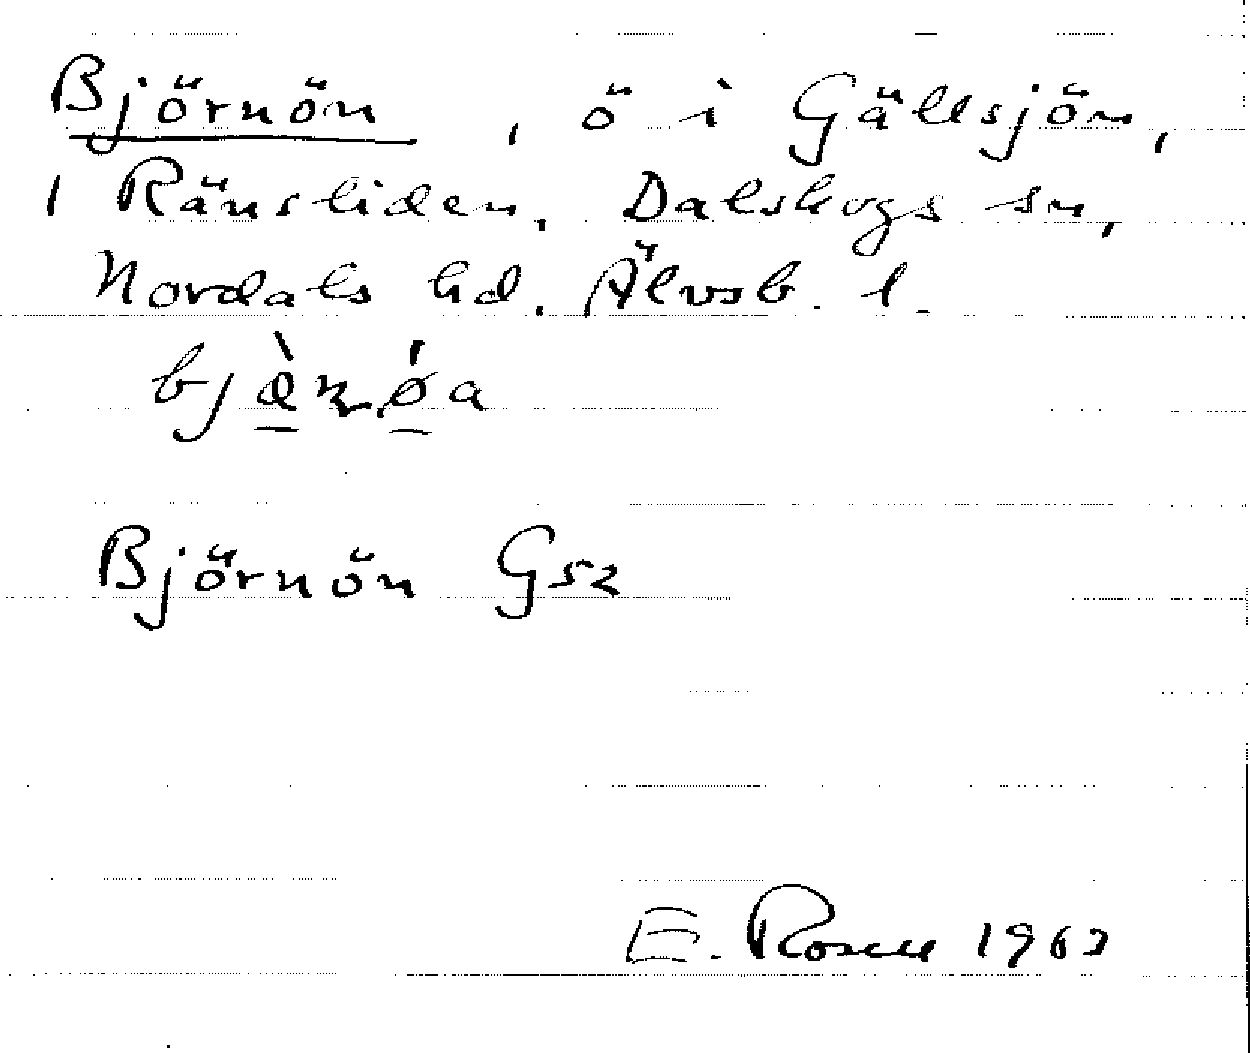 Björnön, ö i Gällsjön,
i Ränsliden, Dalskogs sn,
Nordals hd. Älvsb. l.
Björnön Gsz
E. Rosell 1963